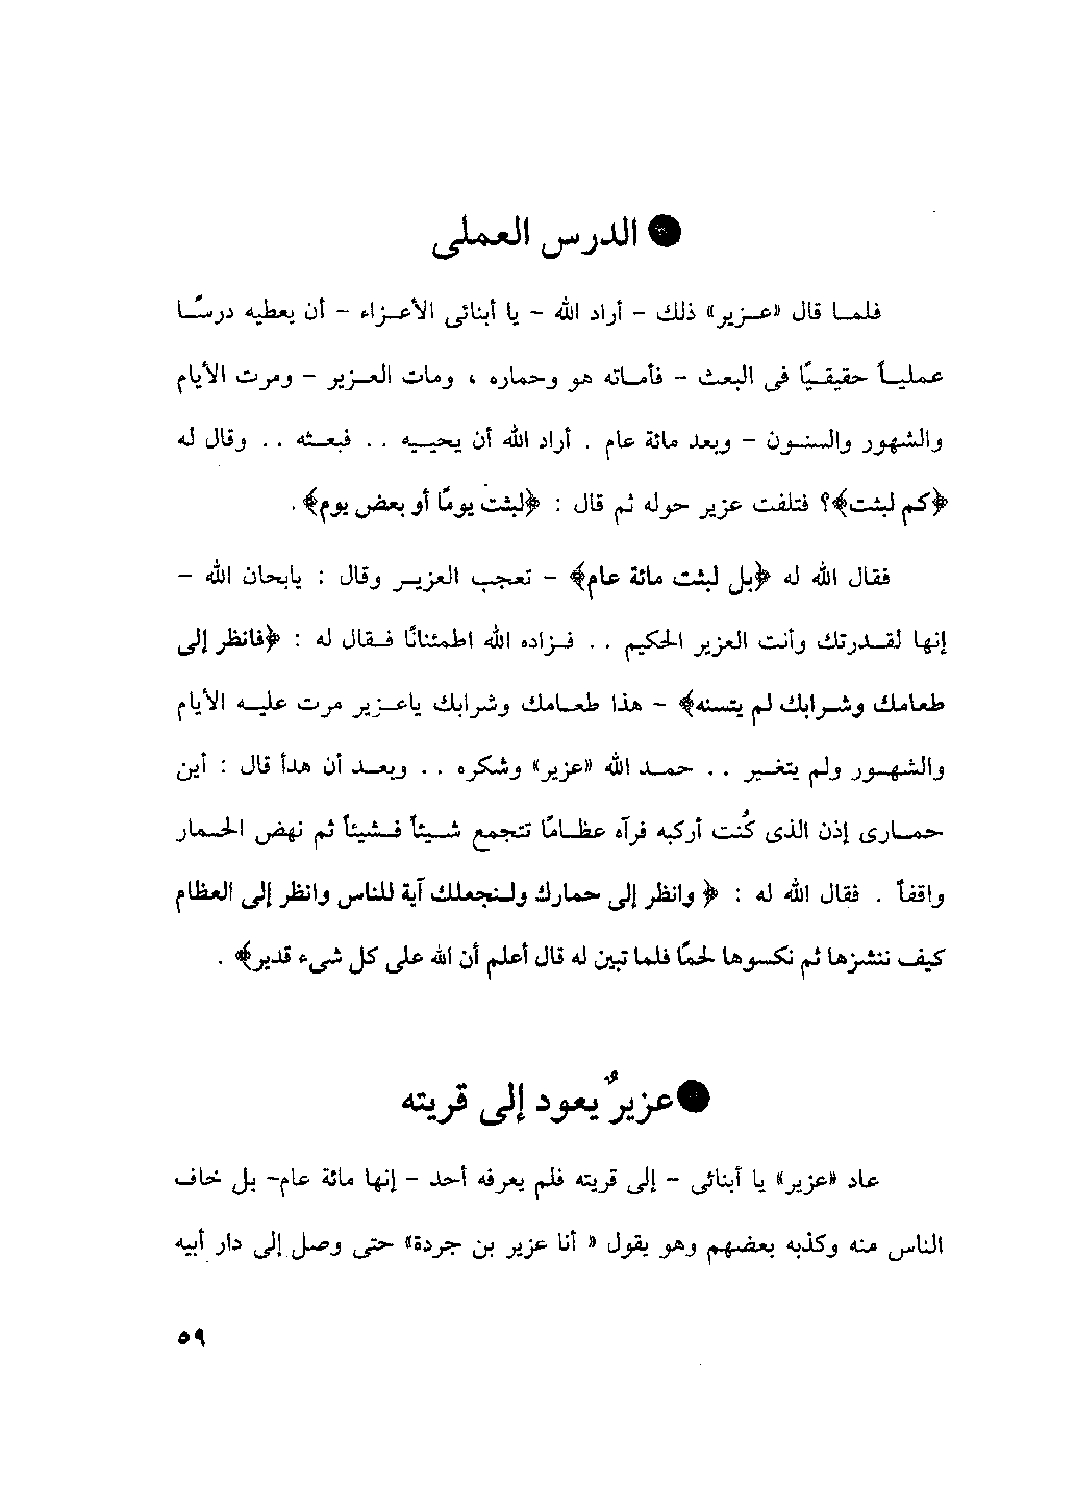 ● الدرس العملى
فلما قال «عزير» ذلك - أراد الله - يا أبنائى الأعزاء - أن يعطيه درسًا
عملياً حقيقيًا فى البعث - فأماته هو وحماره ، ومات العزير - ومرت الأيام
والشهور والسنون - وبعد مائة عام . أراد الله أن يحييه .. فبعثه .. وقال له
﴿كم لبثت﴾؟ فتلفت عزير حوله ثم قال : ﴿لبثت يومًا أو بعض يوم﴾ .
فقال الله له ﴿بل لبثت مائة عام﴾ - تعجب العزير وقال : يابحان الله -
إنها لقدرتك وأنت العزير الحكيم .. فزاده الله اطمئنانًا فقال له : ﴿فانظر إلى
طعامك وشرابك لم يتسنه﴾ - هذا طعامك وشرابك ياعزير مرت عليه الأيام
والشهور ولم يتغير .. حمد الله «عزير» وشكره .. وبعد أن هدأ قال : أين
حمارى إذن الذى كُنت أركبه فرآه عظامًا تتجمع شيئاً فشيئاً ثم نهض الحمار
واقفاً . فقال الله له : ﴿ وانظر إلى حمارك ولنجعلك آية للناس وانظر إلى العظام
كيف ننشزها ثم نكسوها لحمًا فلما تبين له قال أعلم أن الله على كل شىء قدير﴾ .
● عزيرٌ يعود إلى قريته
عاد «عزير» يا أبنائى - إلى قريته فلم يعرفه أحد - إنها مائة عام- بل خاف
الناس منه وكذبه بعضهم وهو يقول « أنا عزير بن جردة» حتى وصل إلى دار أبيه
٥٩